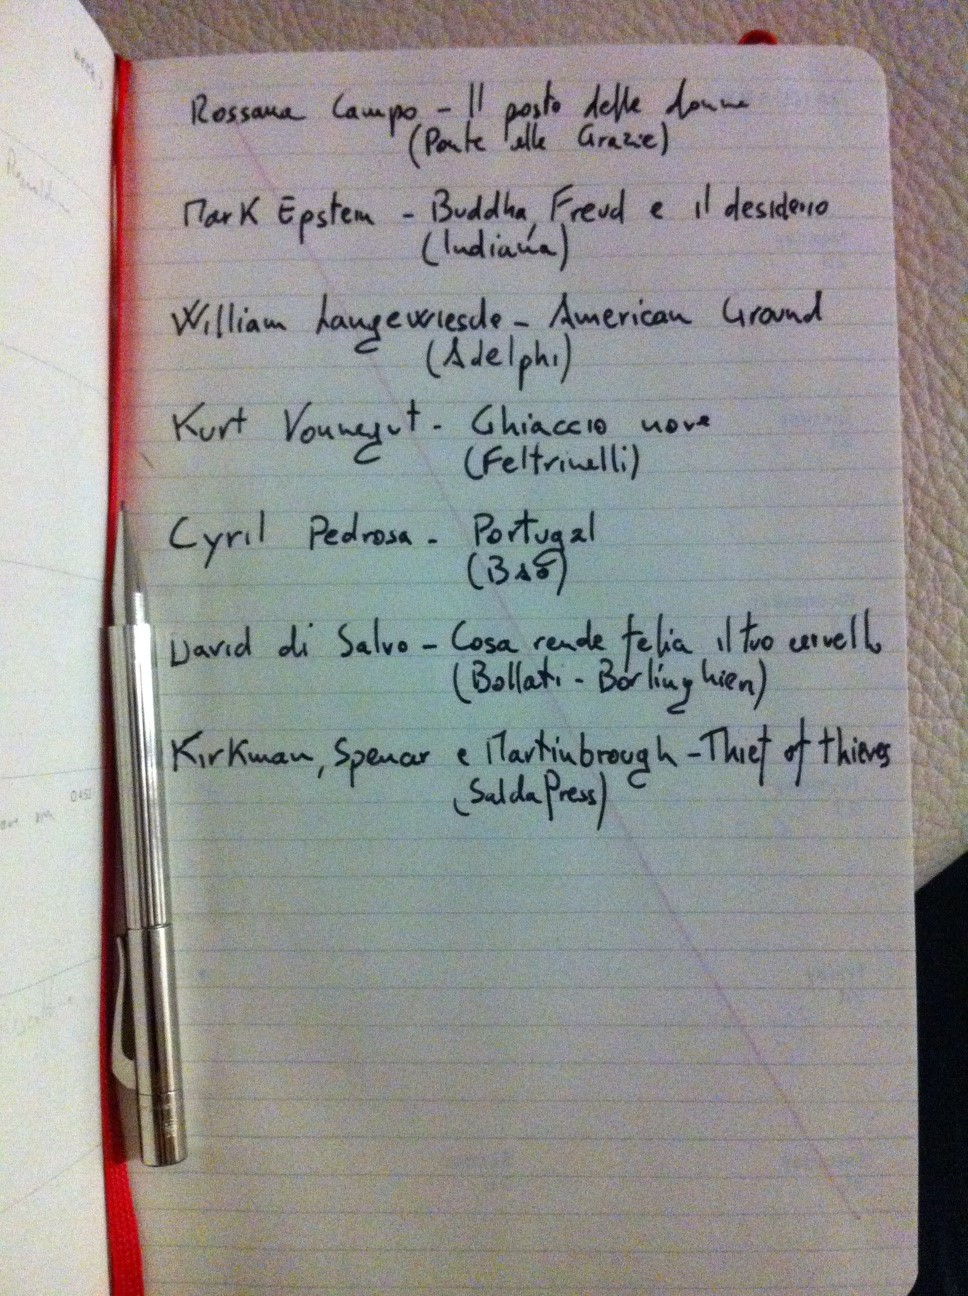 Rossana Campo - Il posto delle donne
(Ponte alle Grazie)
Mark Epstein - Buddha, Freud e il desiderio
(Indiana)
William Langewiesche - American Ground
(Adelphi)
Kurt Vonnegut - Ghiaccio nove
(Feltrinelli)
Cyril Pedrosa - Portugal
(Bao)
David di Salvo - Cosa rende felice il tuo cervello
(Bollati - Boringhieri)
Kirkman, Spencer e Martinbrough - Thief of thieves
(SaldaPress)